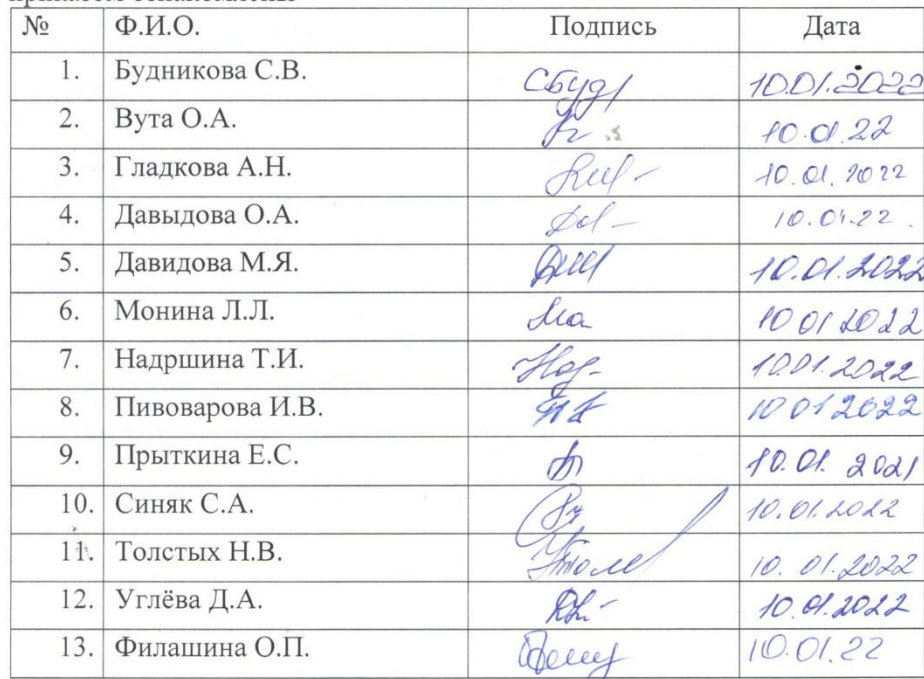 № Ф.И.О. Подпись Дата
1. Будникова С.В. СБуд 10.01.2022
2. Вута О.А. 10.01.22
3. Гладкова А.Н. 10.01.2022
4. Давыдова О.А. 10.01.22.
5. Давидова М.Я. 10.01.2022
6. Монина Л.Л. 10 01 2022
7. Надршина Т.И. Над- 10.01.2022
8. Пивоварова И.В. 10 01 2022
9. Прыткина Е.С. 10.01. 2021
10. Синяк С.А. 10.01.2022
11. Толстых Н.В. 10. 01.2022
12. Углёва Д.А. 10.01.2022
13. Филашина О.П. 10.01.22